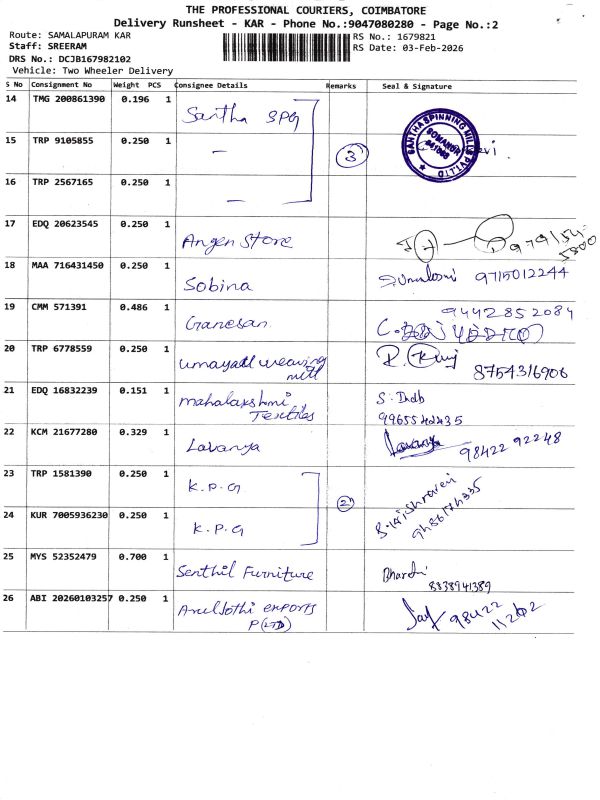 THE PROFESSIONAL COURIERS, COIMBATORE
Delivery Runsheet - KAR - Phone No.:9047080280 - Page No.:2
Route: SAMALAPURAM KAR
RS No.: 1679821
Staff: SREERAM
RS Date: 03-Feb-2026
DRS No.: DCJB167982102
Vehicle: Two Wheeler Delivery
S No Consignment No Weight PCS Consignee Details Remarks Seal & Signature
14 TMG 200861390 0.196 1 Santha SPG
SANTHA SPINNING MILLS PVT LTD
SOMANUR
641668
15 TRP 9105855 0.250 1 — 3
16 TRP 2567165 0.250 1 —
17 EDQ 20623545 0.250 1 Angen Store
18 MAA 716431450 0.250 1 Sobina 9715012244
19 CMM 571391 0.486 1 Ganesan 9442852084
20 TRP 6778559 0.250 1 Umayall weaving mill 8754316906
21 EDQ 16832239 0.151 1 mahalakshmi Textiles
9965542435
22 KCM 21677280 0.329 1 Lavanya Lavanya 98422 92248
23 TRP 1581390 0.250 1 K.P.G 2
24 KUR 7005936230 0.250 1 K.P.G
25 MYS 52352479 0.700 1 Senthil Furniture Bharathi
8838941389
26 ABI 20260103257 0.250 1 Aruljothi exports P(LTD) 98422